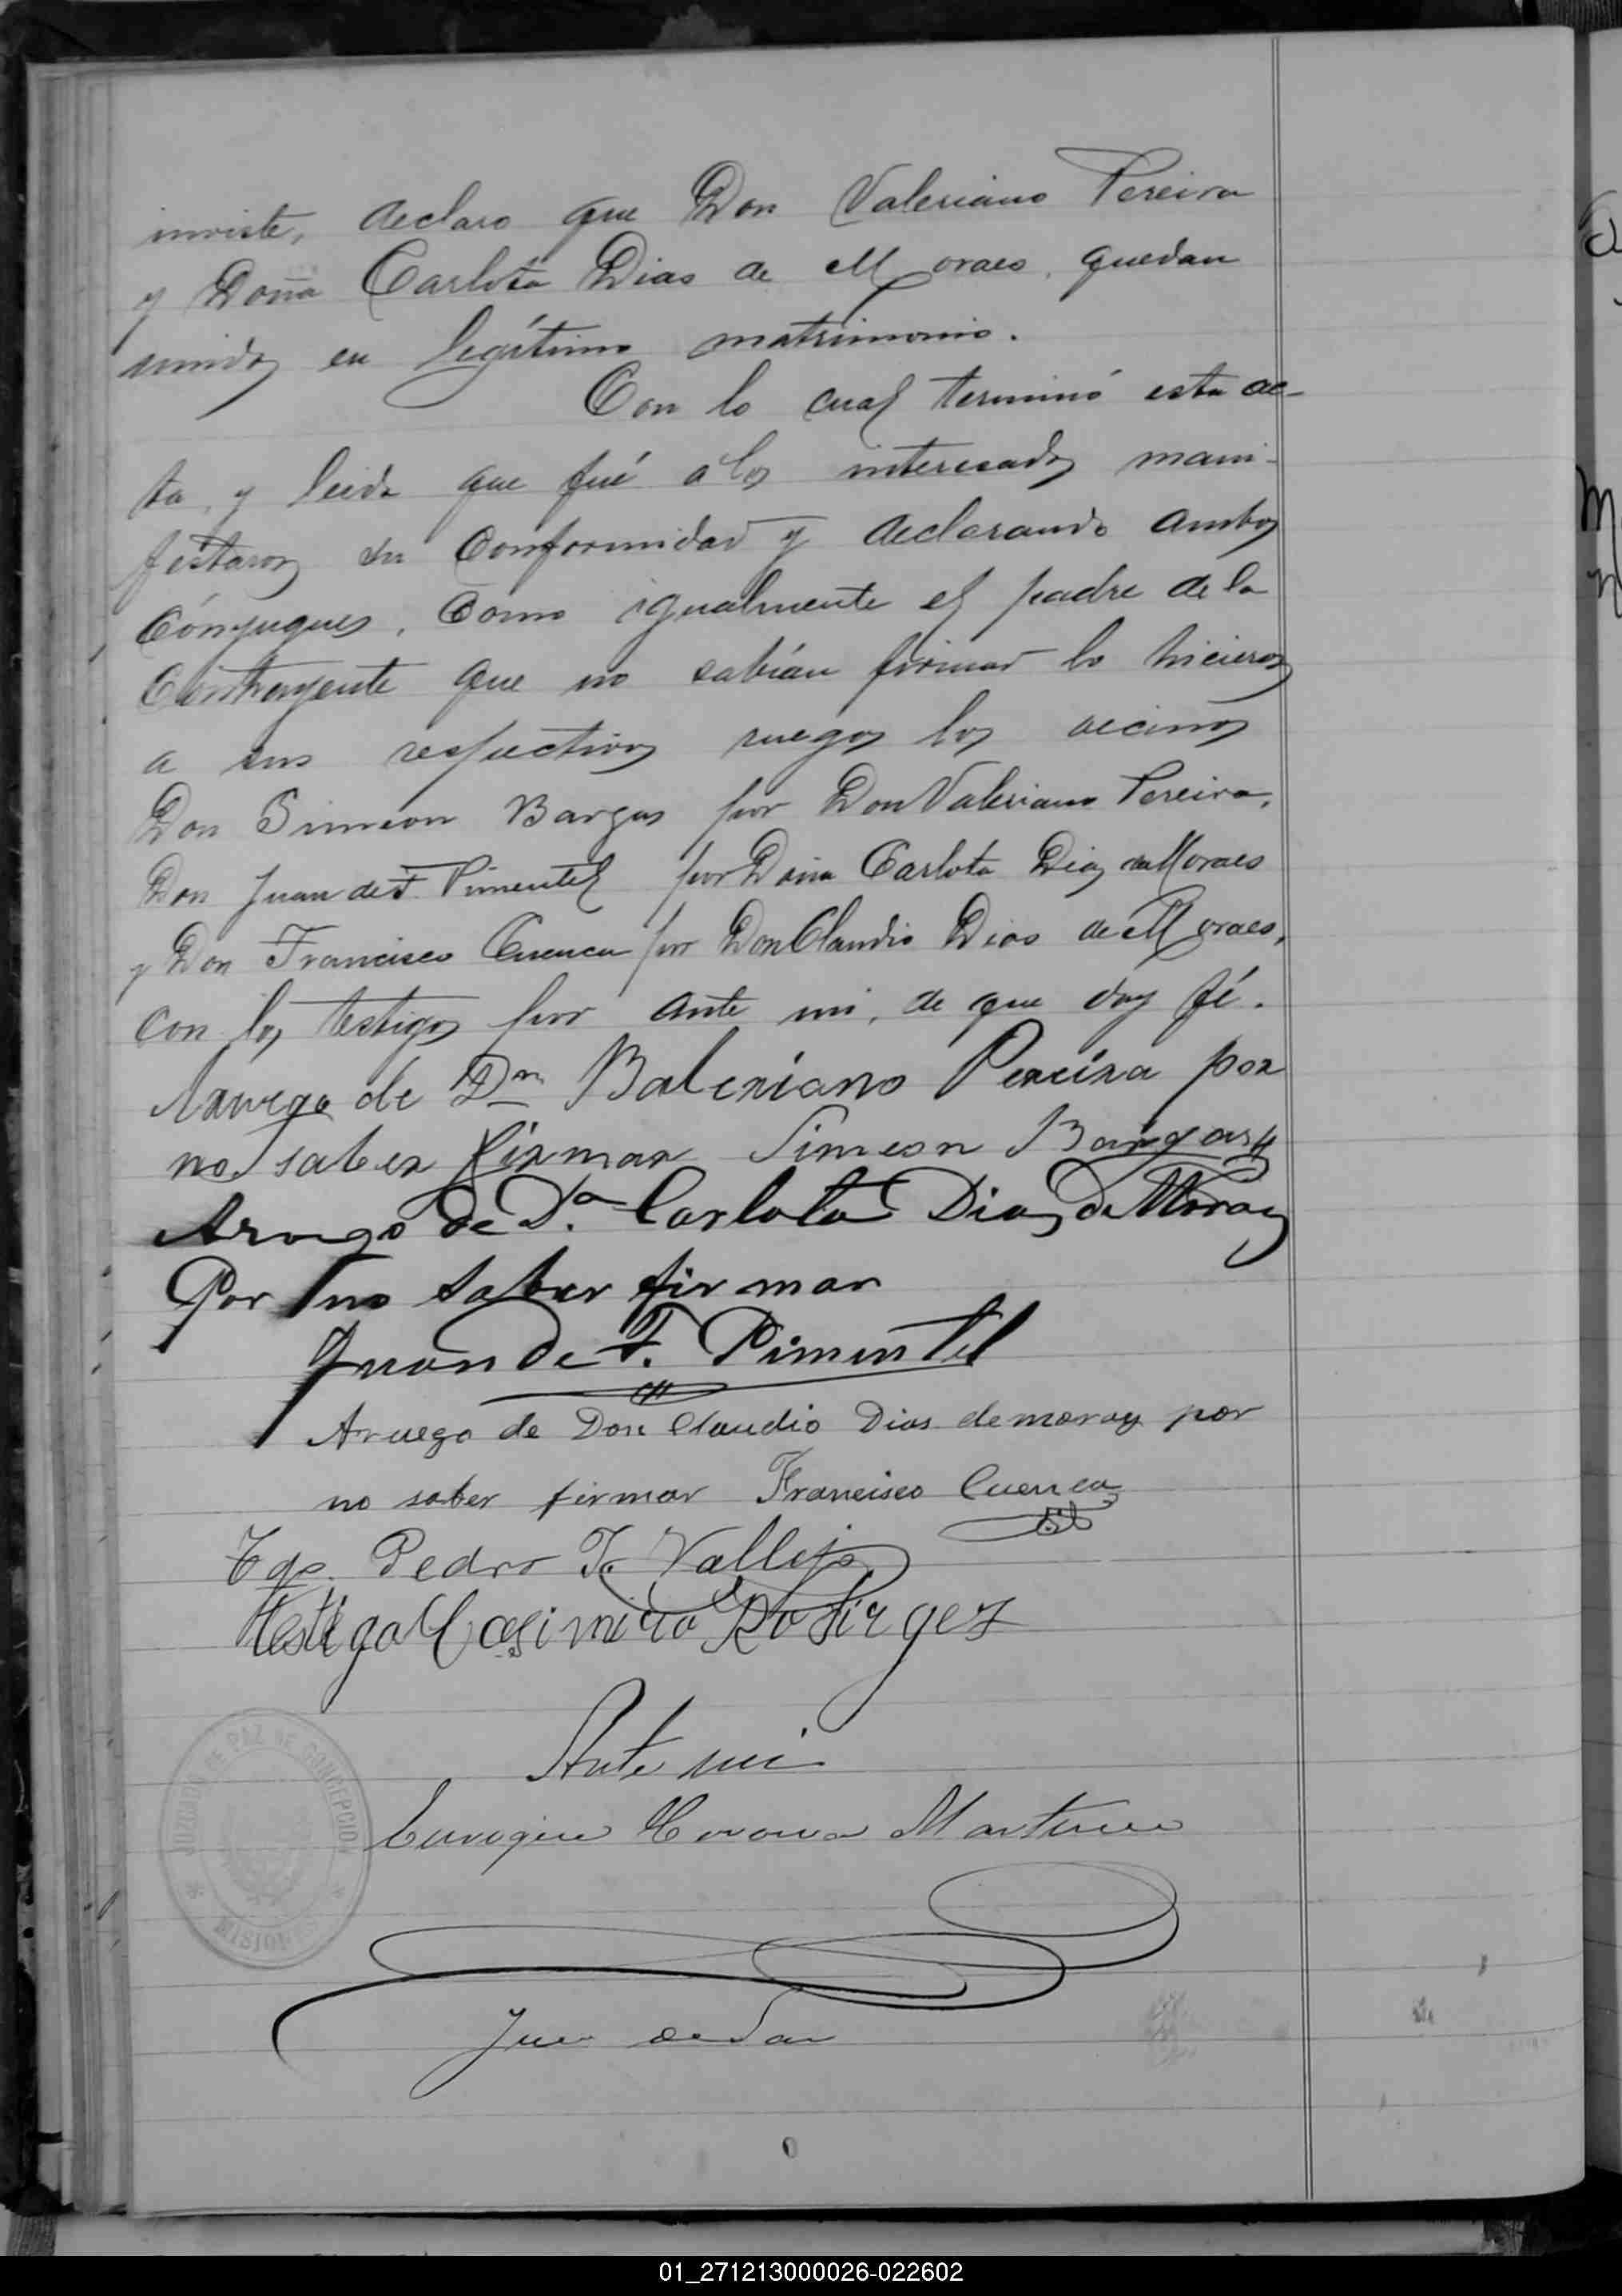 inviste, declaro que Don Valeriano Pereira
y Doña Carlota Dias de Moraes, quedan
unidos en legítimo matrimonio.
Con lo cual terminó esta ac-
ta, y leida que fué a los interesados mani-
festaron su conformidad y declarando ambos
cónyugues, como igualmente el padre de la
contrayente que no sabían firmar lo hicieron
a sus respectivos ruegos los vecinos
Don Simeon Bargas por Don Valeriano Pereira,
Don Juan de F. Pimentel por Doña Carlota Dias de Moraes
y Don Francisco Cuenca por Don Claudio Dias de Moraes,
con los testigos por ante mi, de que doy fé.
Aruego de Dn Baleriano Pereira por
no saber firmar Simeon Bargas
Aruego de Da. Carlota Dias de Moraes
Por no saber firmar
Juan de F. Pimentel
Aruego de Don Claudio Dias demoray por
no saber firmar Francisco Cuenca
Tgo. Pedro J. Vallejo
Testigo Casimiro Rodirgez
Ante mi
Enrique Corona Martinez
JUZGADO DE PAZ DE CONCEPCION
* MISIONES *
Juez de Paz
01_271213000026-022602